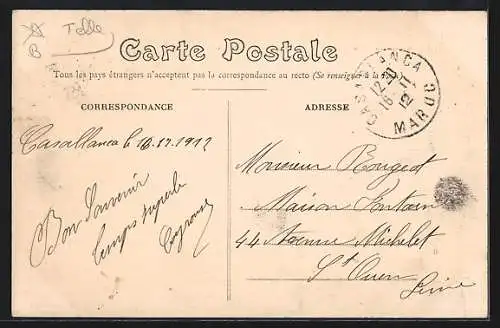 Carte Postale
Tous les pays étrangers n'acceptent pas la correspondance au recto (Se renseigner à la
CORRESPONDANCE
ADRESSE
CASABLANCA
12-20
16-11
12
MAROC
Casablanca le 1912
Bon Souvenir
temps superbe
Monsieur Rouget
Maison
44 Avenue Michelet
St Ouen
Seine